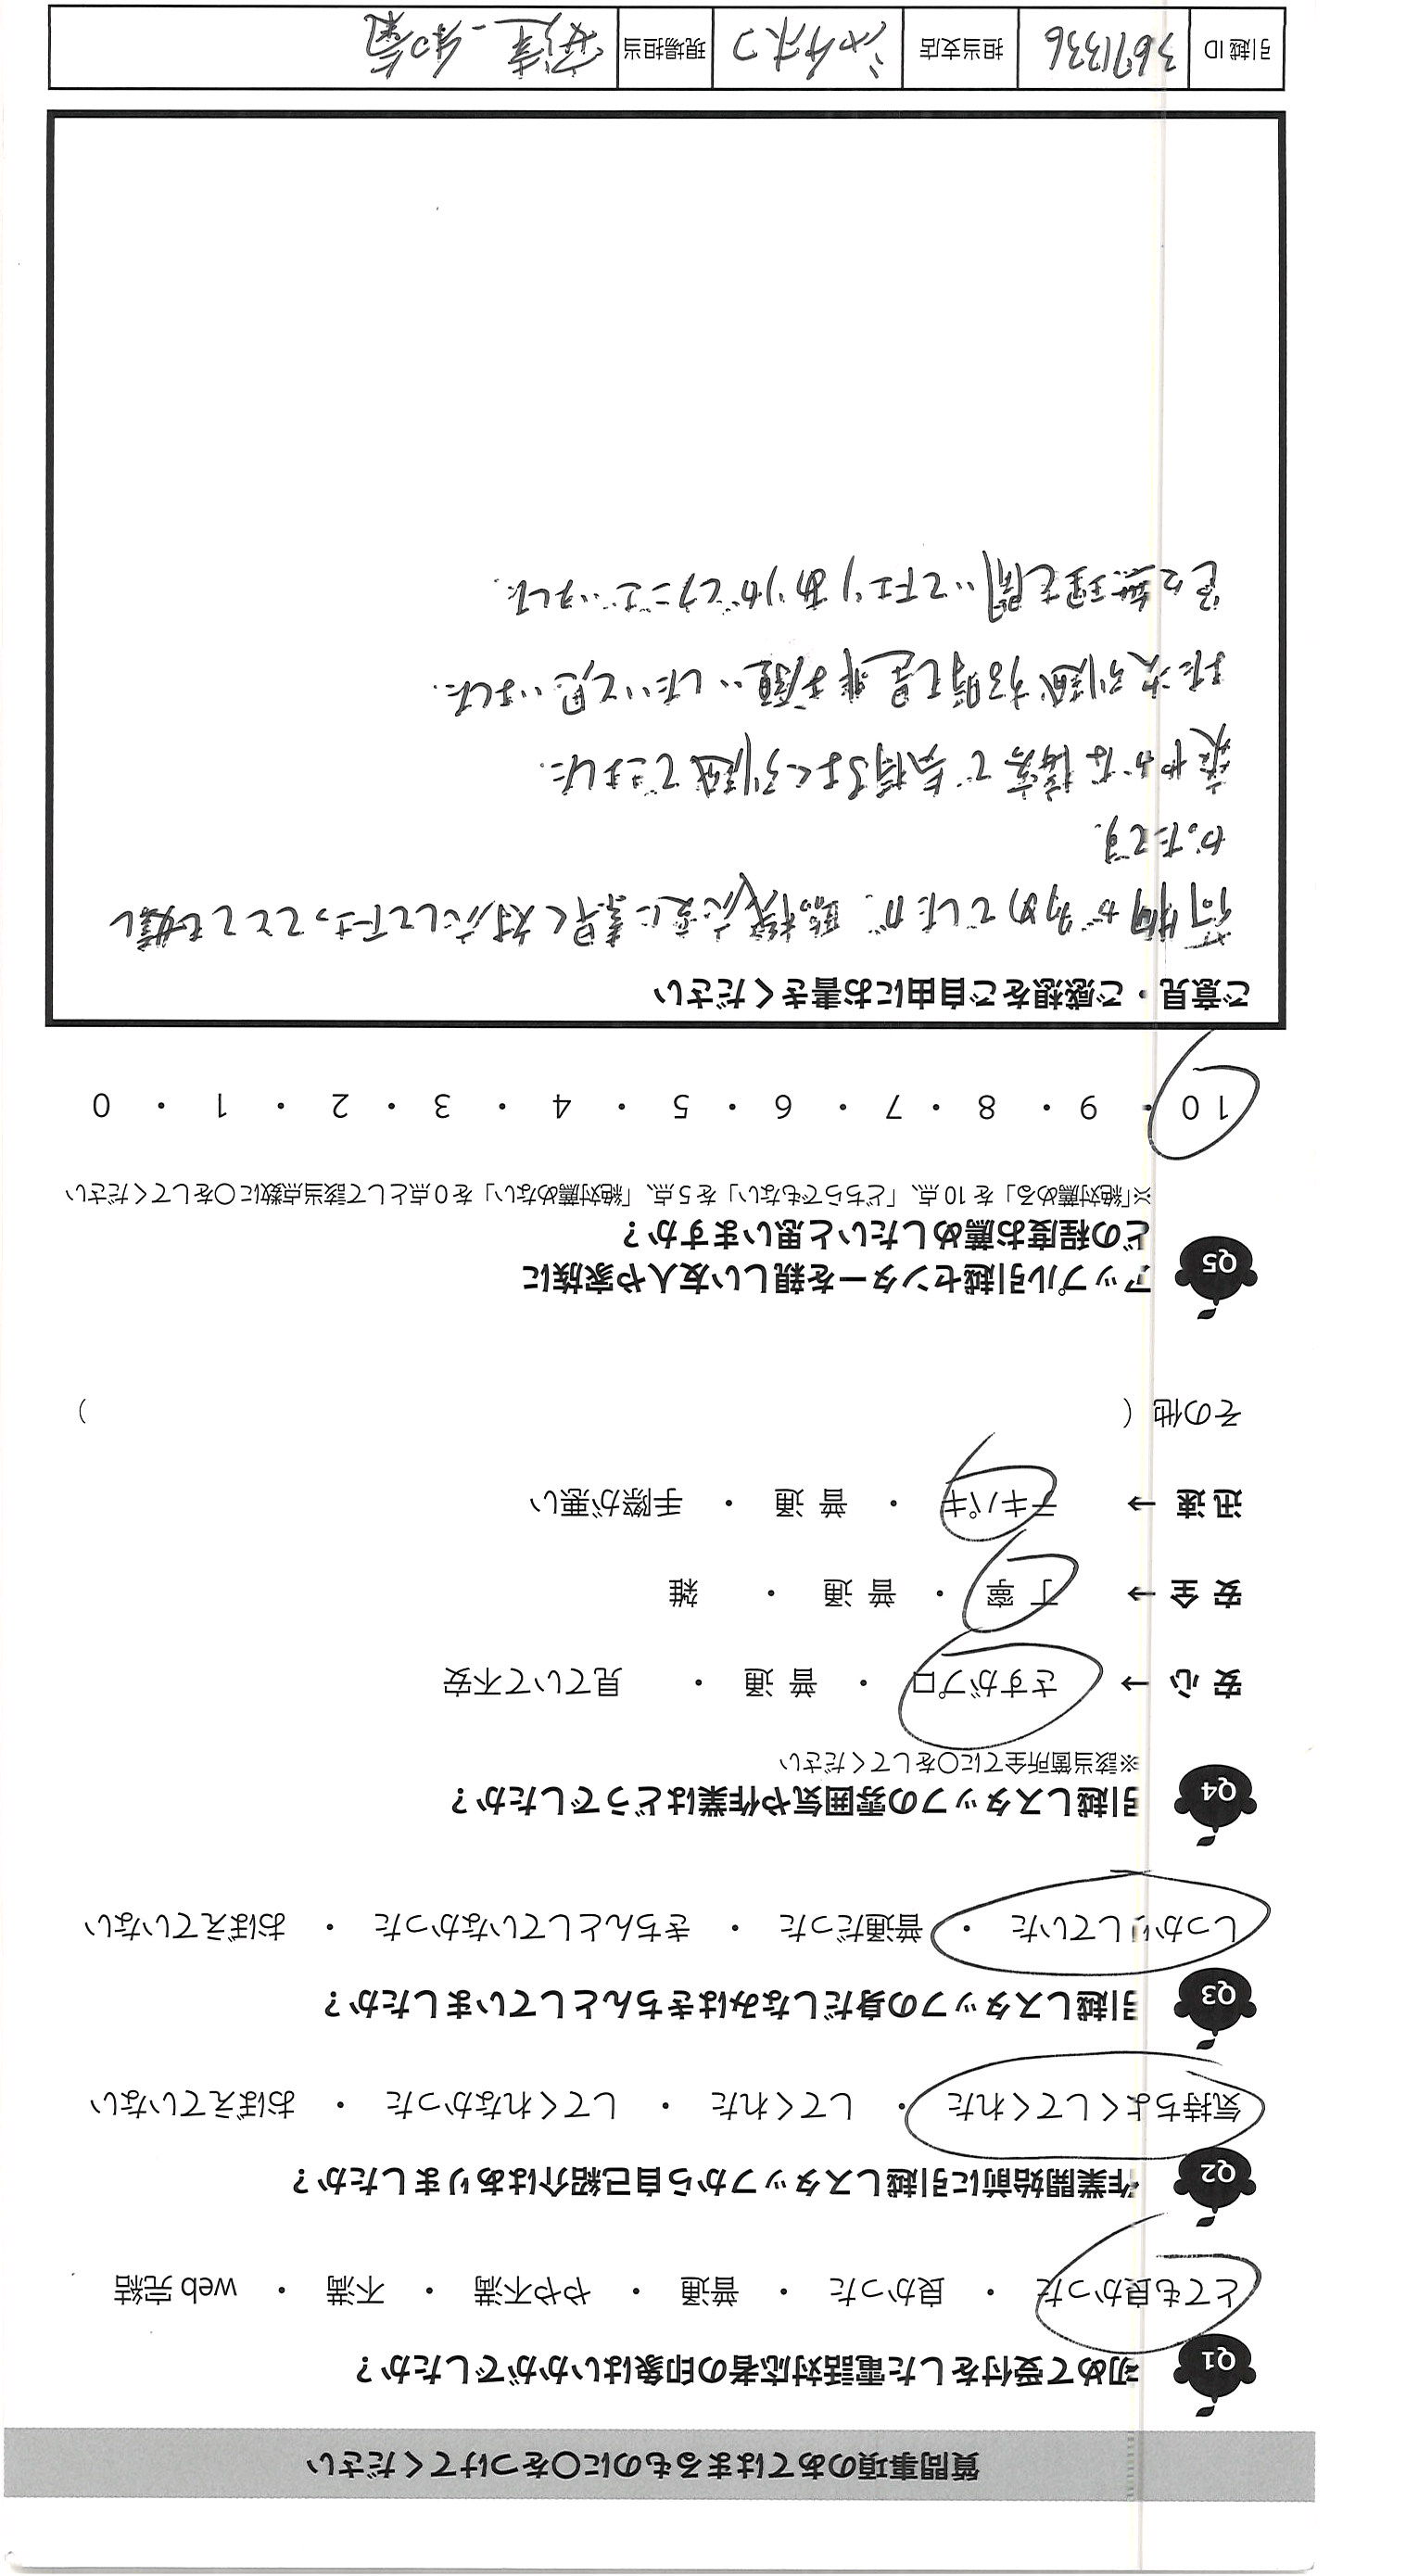 質問事項のあてはまるものに○をつけてください
Q1 初めて受付をした電話対応者の印象はいかがでしたか？
とても良かった ・ 良かった ・ 普通 ・ やや不満 ・ 不満 ・ web完結
Q2 作業開始前に引越しスタッフから自己紹介はありましたか？
気持ちよくしてくれた ・ してくれた ・ してくれなかった ・ おぼえていない
Q3 引越しスタッフの身だしなみはきちんとしていましたか？
しっかりしていた ・ 普通だった ・ きちんとしていなかった ・ おぼえていない
Q4 引越しスタッフの雰囲気や作業はどうでしたか？
※該当箇所全てに○をしてください
安心 → さすがプロ ・ 普通 ・ 見ていて不安
安全 → 丁寧 ・ 普通 ・ 雑
迅速 → テキパキ ・ 普通 ・ 手際が悪い
その他（ ）
Q5 アップル引越センターを親しい友人や家族に
どの程度お薦めしたいと思いますか？
※「絶対薦める」を10点、「どちらでもない」を5点、「絶対薦めない」を0点として該当点数に○をしてください
10 ・ 9 ・ 8 ・ 7 ・ 6 ・ 5 ・ 4 ・ 3 ・ 2 ・ 1 ・ 0
ご意見・ご感想をご自由にお書きください
荷物が多めでしたが、臨機応変に素早く対応して下さってとても嬉し
かったです。
爽やかな接客で気持ちよく引越できました。
また次引越する時も是非お願いしたいと思いました。
色々無理を聞いて下さりありがとうございました。
引越ID 3671336 担当支店 ジャイオン 現場担当 安達